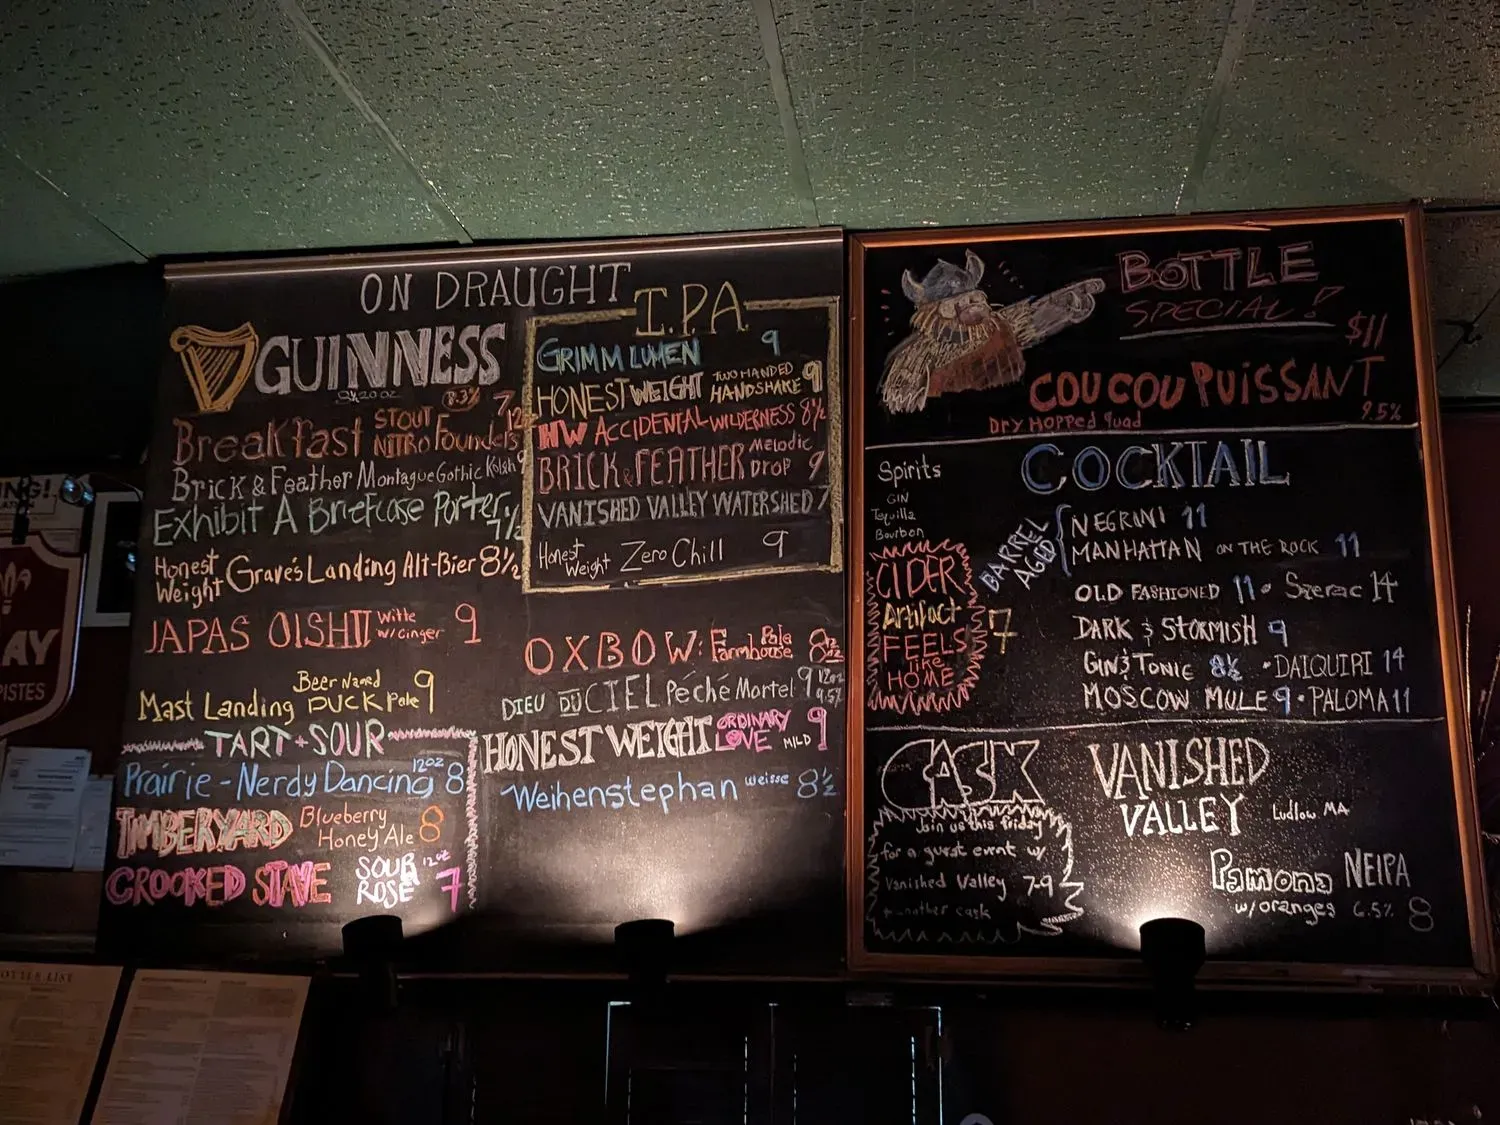 ON DRAUGHT
GUINNESS
20 oz
Breakfast STOUT 8.3% 7
NITRO Founders 12oz
Brick & Feather Montague Gothic Kolsh 9
Exhibit A Briefcase Porter 7½
Honest Weight Grave's Landing Alt-Bier 8½
JAPAS OISHII Witte w/Ginger 9
Mast Landing Beer Named DUCK Pale 9
TART + SOUR
Prairie - Nerdy Dancing 12oz 8
TIMBERYARD Blueberry Honey Ale 8
CROOKED STAVE SOUR ROSÉ 7
I.P.A
GRIMM LUMEN 9
HONEST WEIGHT TWO HANDED HANDSHAKE 9
HW ACCIDENTAL WILDERNESS 8½
BRICK & FEATHER Melodic DROP 9
VANISHED VALLEY WATERSHED 7
Honest Weight Zero Chill 9
OXBOW: Pale Farmhouse 8 12oz
DIEU DU CIEL Péché Mortel 9 12oz 9.5%
HONEST WEIGHT ORDINARY LOVE MILD 9
Weihenstephan weisse 8½
BOTTLE
SPECIAL!
$11
COUCOU PUISSANT
Dry Hopped quad 9.5%
COCKTAIL
Spirits
GIN
Tequilla
Bourbon
CIDER
Artifact
FEELS
like
HOME
7
BARREL AGED
NEGRINI 11
MANHATTAN ON THE ROCK 11
OLD FASHIONED 11 • Szerac 14
DARK & STORMISH 9
GIN & TONIC 8½ • DAIQUIRI 14
MOSCOW MULE 9 • PALOMA 11
CASK
Join us this friday
for a guest event w/
Vanished Valley 7-9
+ another cask
VANISHED
VALLEY Ludlow MA
Pamona NEIPA
w/oranges 6.5% 8